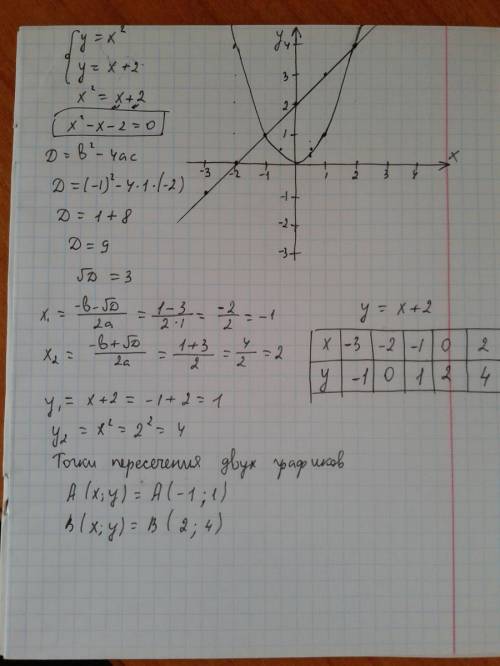 { y = x²
y = x+2
x² = x+2
x² – x – 2 = 0
D = b² – 4ac
D = (-1)² – 4·1·(-2)
D = 1 + 8
D = 9
√D = 3
x₁ = (-b-√D)/2a = (1-3)/(2·1) = -2/2 = -1
x₂ = (-b+√D)/2a = (1+3)/2 = 4/2 = 2
y₁ = x+2 = -1+2 = 1
y₂ = x² = 2² = 4
Точки пересечения двух графиков
A (x; y) = A (-1; 1)
B (x; y) = B ( 2; 4)
y
4
3
2
1
-3 -2 -1 0 1 2 3 4 x
-1
-2
-3
y = x+2
x -3 -2 -1 0 2
y -1 0 1 2 4